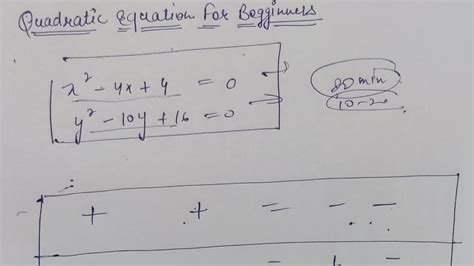 Quadratic Equation For Begginners
x² - 4x + 4 = 0
y² - 10y + 16 = 0
20 min
10-20
+ + = - -
- + -